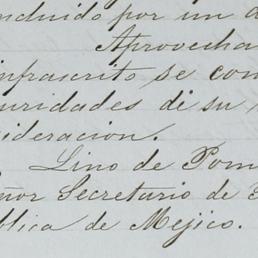 ncluido por un d
Aprovecha
infrascrito se con
uridades di su
sideracion.
Lino de Pom
ñor Secretario de E
blica de Mejico.